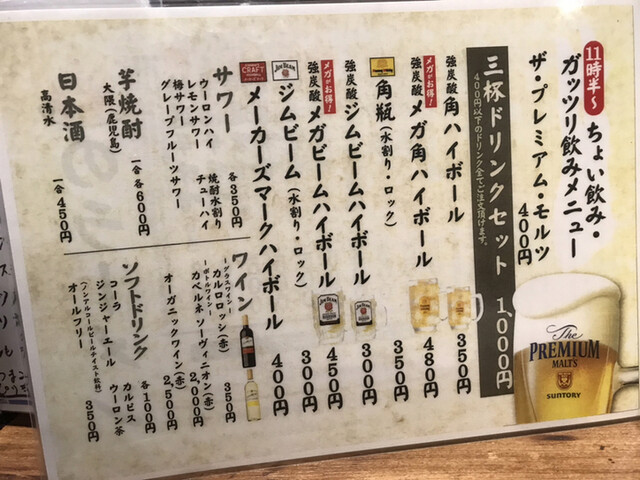 11時半〜ちょい飲み・
ガッツリ飲みメニュー
ザ・プレミアム・モルツ
400円
三杯ドリンクセット 1,000円
400円以下のドリンク全てご注文頂けます。
強炭酸 角ハイボール 350円
メガがお得!
強炭酸 メガ角ハイボール 480円
角瓶(水割り・ロック) 350円
強炭酸 ジムビームハイボール 300円
メガがお得!
強炭酸 メガビームハイボール 450円
JIM BEAM
ジムビーム(水割り・ロック) 300円
CRAFT
メーカーズマークハイボール 400円
サワー 各350円
ウーロンハイ 焼酎水割り
レモンサワー チューハイ
梅サワー
グレープフルーツサワー
芋焼酎
大隅(鹿児島) 一合 各600円
日本酒
高清水 一合 450円
ワイン
―グラスワイン―
カルロロッシ(赤) 350円
―ボトルワイン―
カベルネ ソーヴィニオン(赤) 2,000円
オーガニックワイン(赤) 2,500円
ソフトドリンク 各100円
コーラ カルピス
ジンジャーエール ウーロン茶
オールフリー 350円
(ノンアルコールビールテイスト飲料)
The
PREMIUM
MALT'S
SUNTORY